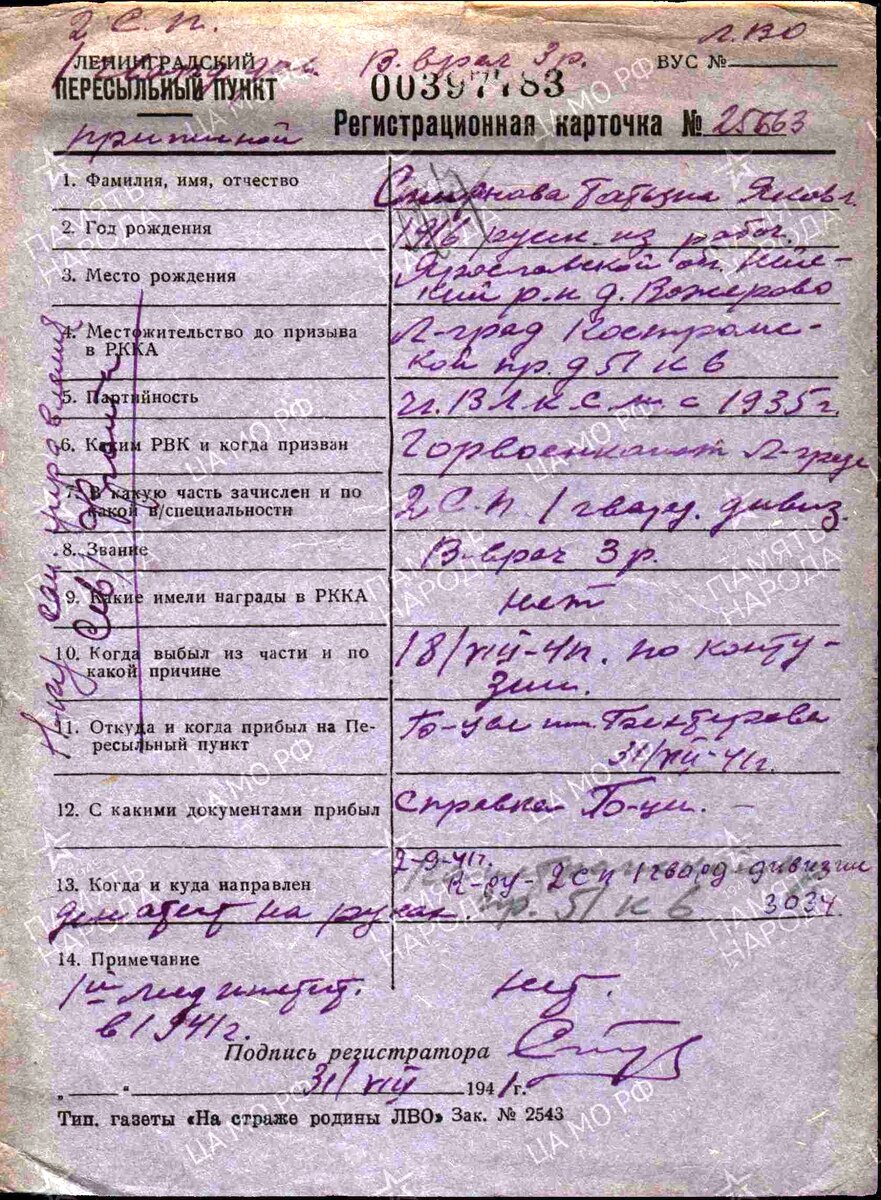 2 С.П.
Л.ВО
ЛЕНИНГРАДСКИЙ
В. врач 3 р.
ВУС №
ПЕРЕСЫЛЬНЫЙ ПУНКТ
00397783
Регистрационная карточка № 25663
1. Фамилия, имя, отчество
Смирнова Татьяна Яковл.
2. Год рождения
1916 русск. из рабоч.
3. Место рождения
Ярославской об.
р-н д.
4. Местожительство до призыва
в РККА
Л-град Костромс-
кой пр. д 51 к 6
5. Партийность
чл. ВЛКСМ с 1935 г.
6. Каким РВК и когда призван
Горвоенкомат Л-града
7. В какую часть зачислен и по
какой в/специальности
2 С.П 1 гвард. дивиз.
8. Звание
В-врач 3 р.
9. Какие имели награды в РККА
нет
10. Когда выбыл из части и по
какой причине
18/VIII-41г. по конту-
зии.
11. Откуда и когда прибыл на Пе-
ресыльный пункт
31/VIII-41г.
12. С какими документами прибыл
справка
13. Когда и куда направлен
2-9-41г.
2 СП 1 гвард дивизии
пр. 51 к 6
3034
на руках
14. Примечание
1й мед институт.
в 1941 г.
нет.
Подпись регистратора
„ “ 31/VIII 1941 г.
Тип. газеты «На страже родины ЛВО» Зак. № 2543
ПАМЯТЬ НАРОДА
ЦА МО РФ